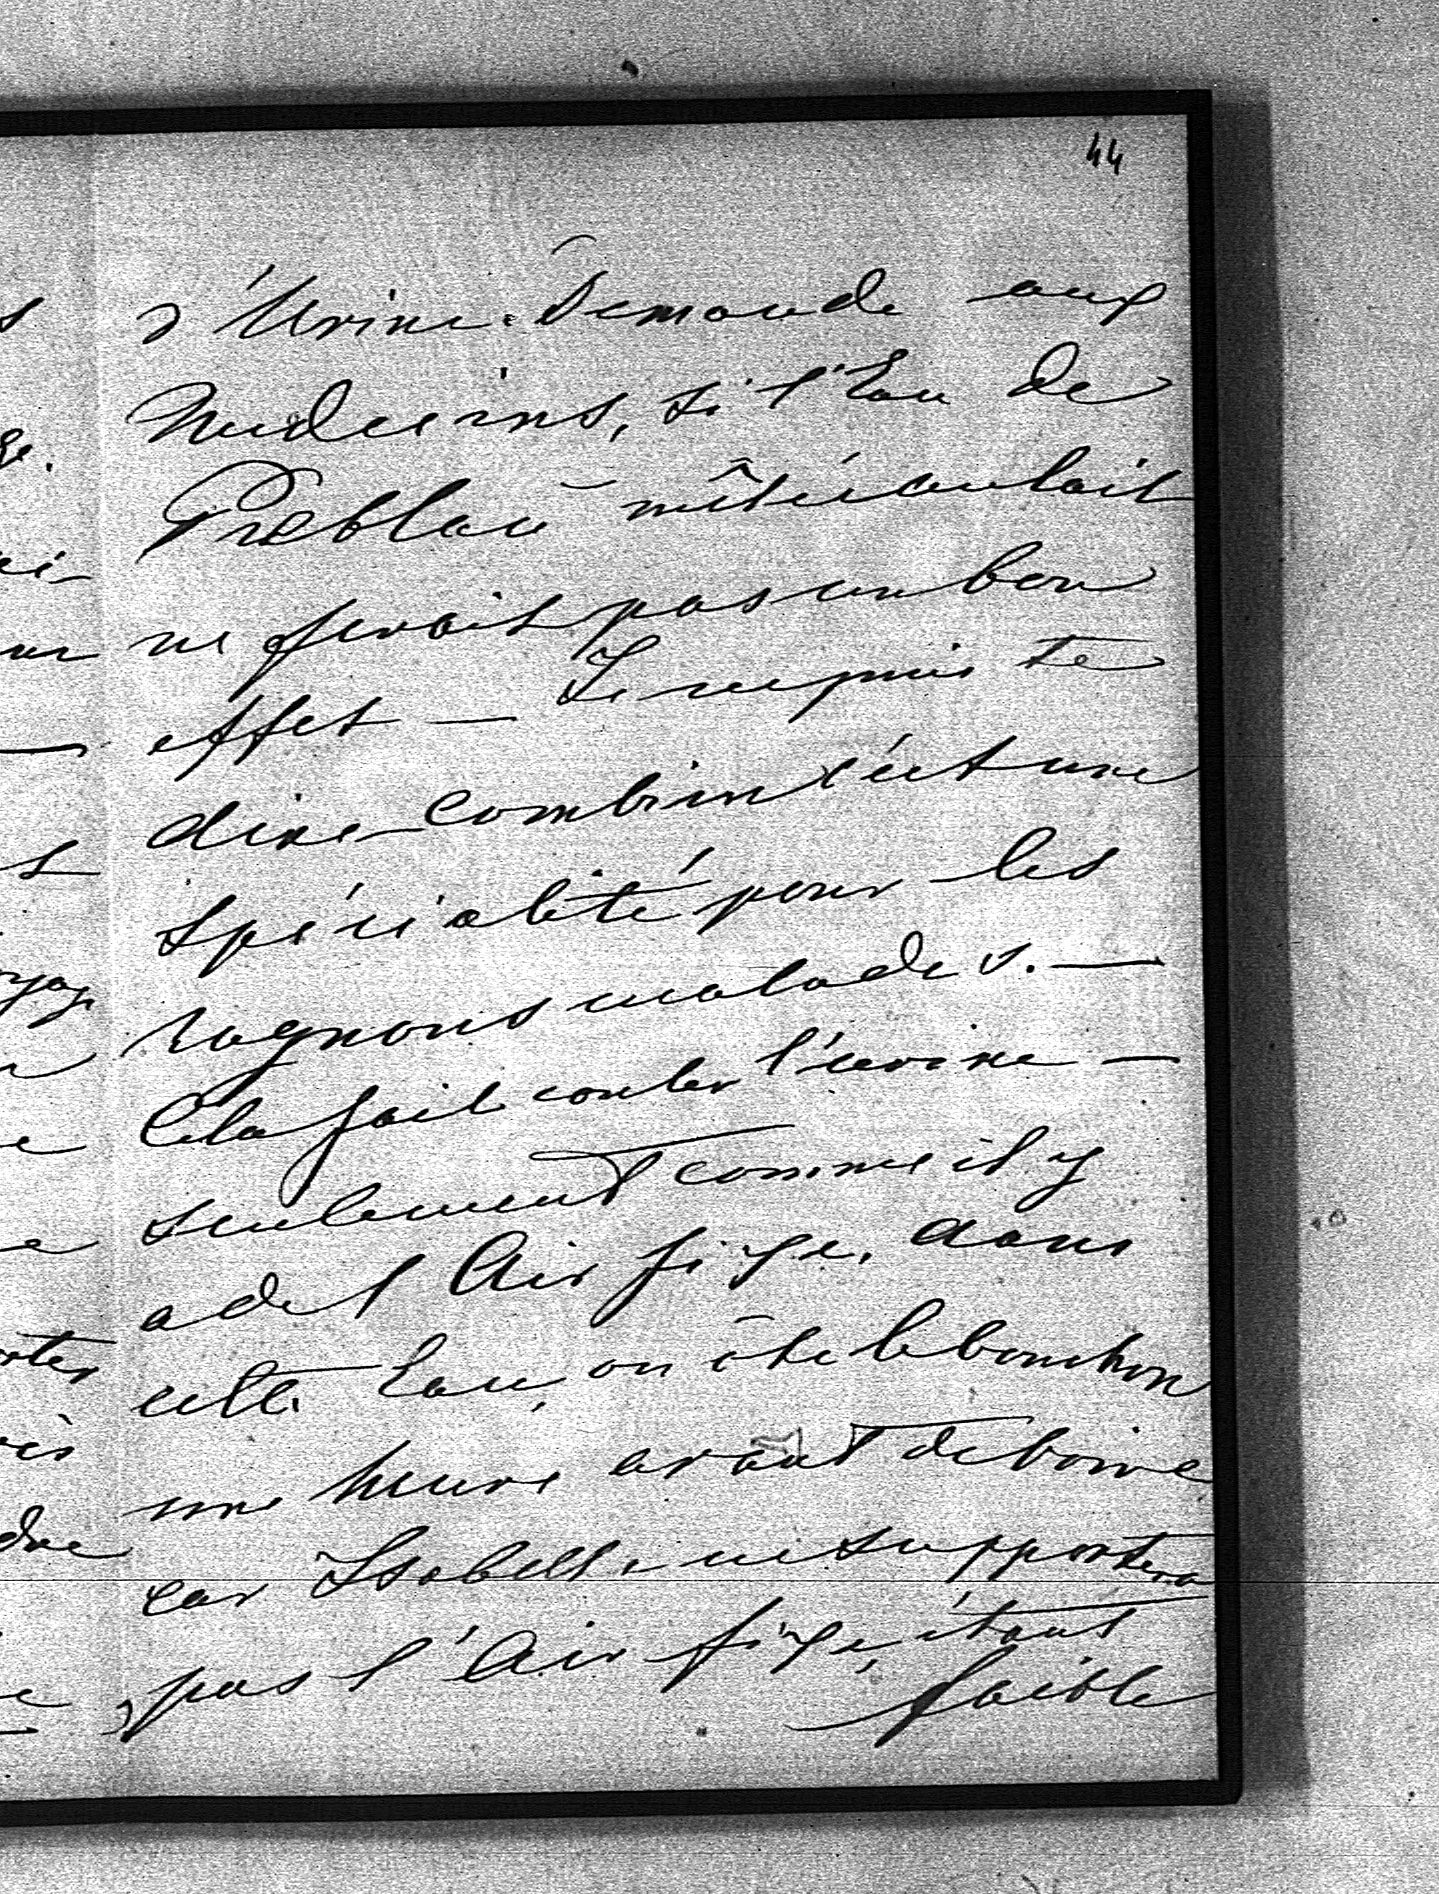 44
d'Urine. Demande aux
Medecins, si l'Eau de
Preblau mêlée au lait
ne ferait pas un bon
effet — Je ne puis te
dire combien c'est une
spécialité pour les
rognons malades. —
Cela fait couler l'urine —
seulement comme il y
a de l'Air fixe, dans
cette Eau, on ôte le bouchon
une heure avant de boire
car Isabelle ne supportera
pas l'Air fixe, étant
faible